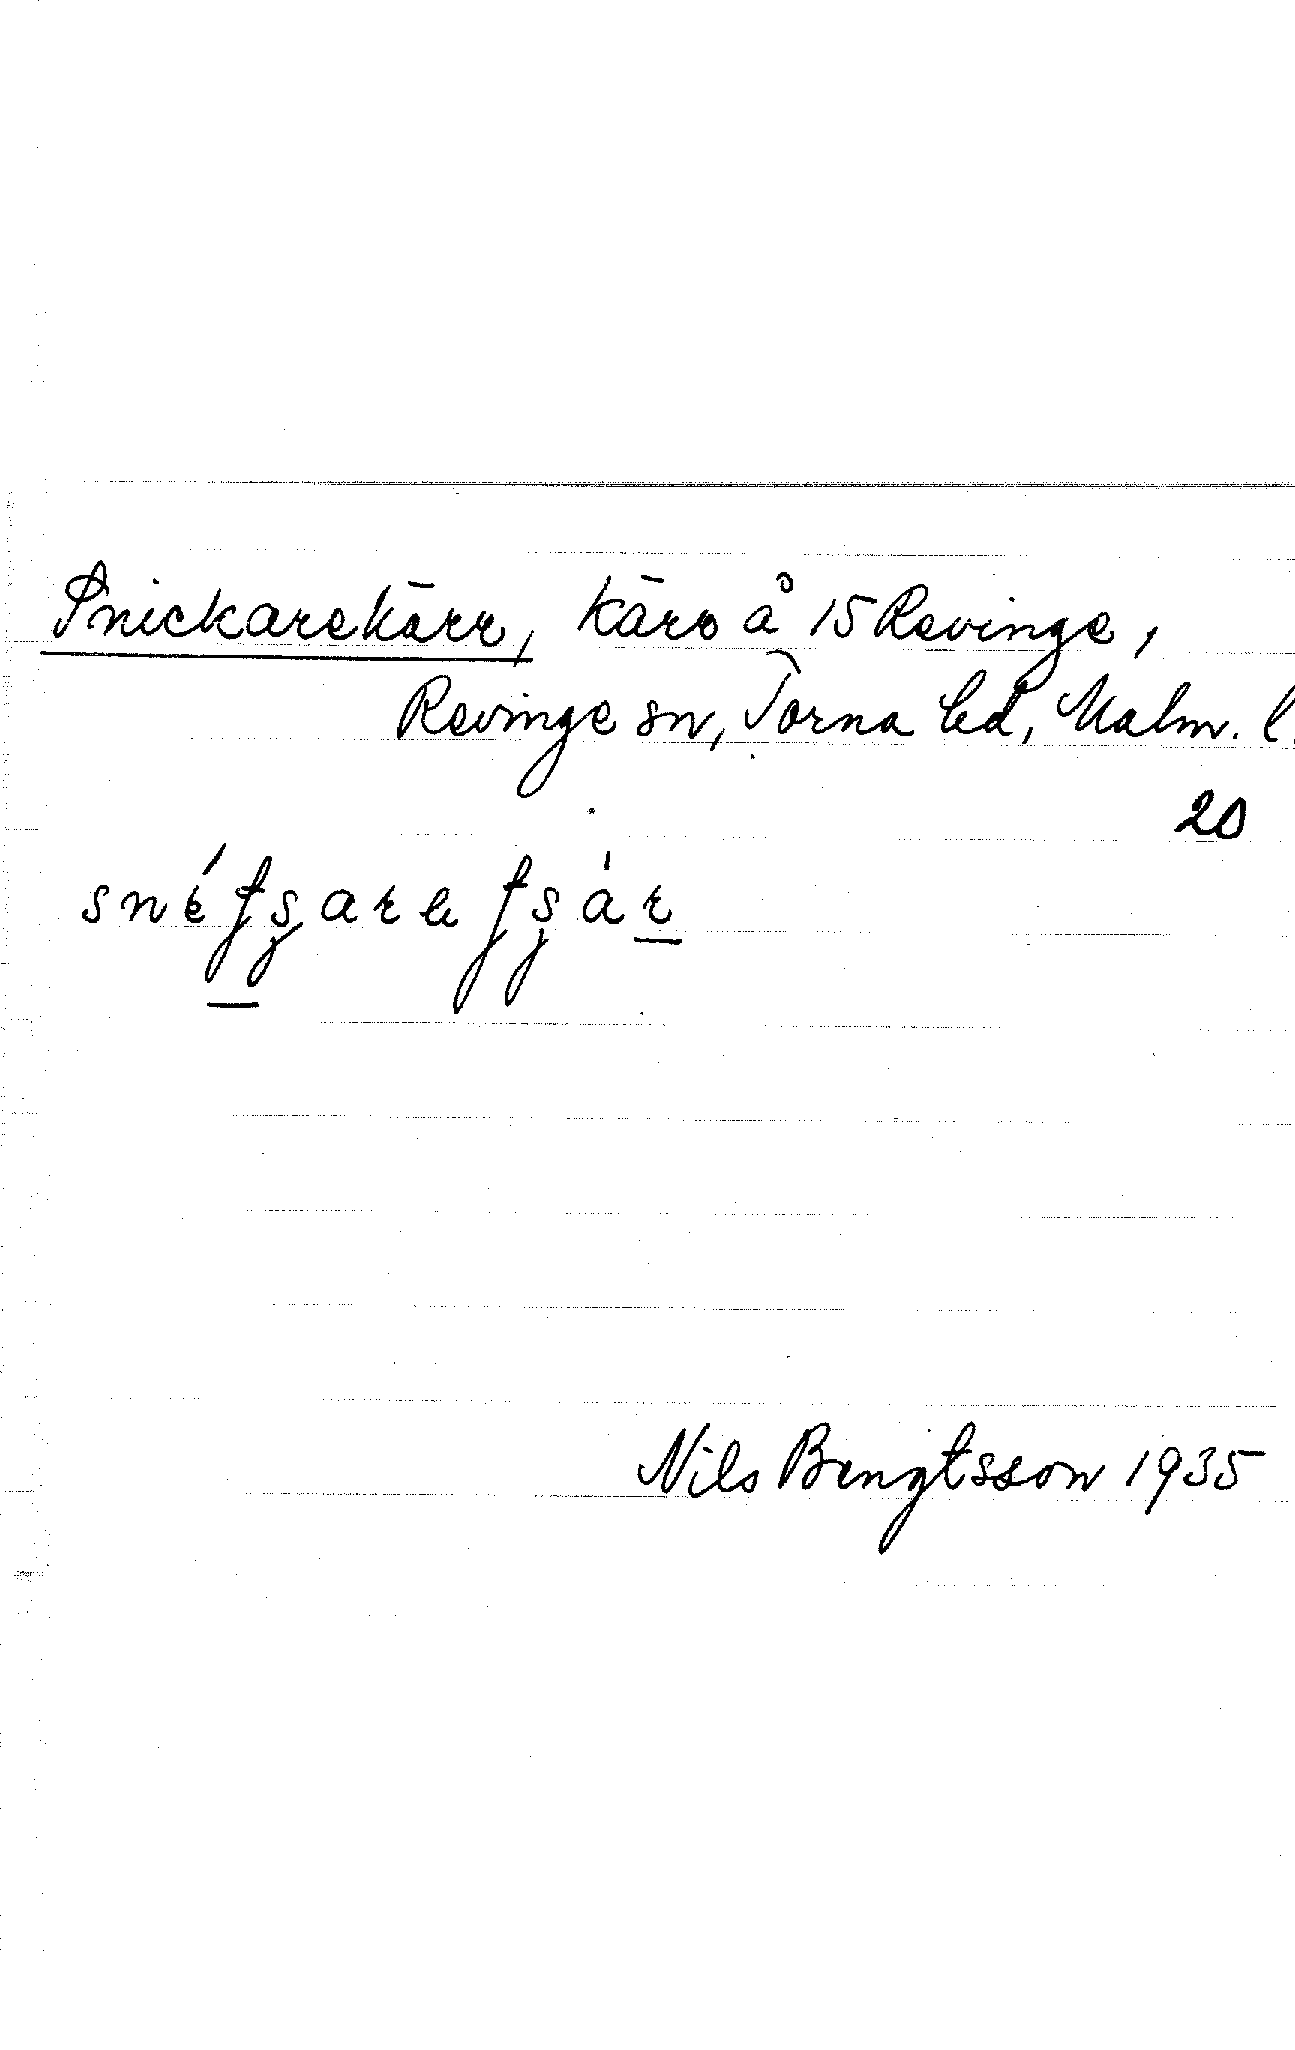 Snickarekärr, kärr å 15 Revinge,
Revinge sn, Torna hd, Malm. l.
20
Nils Bengtsson 1935